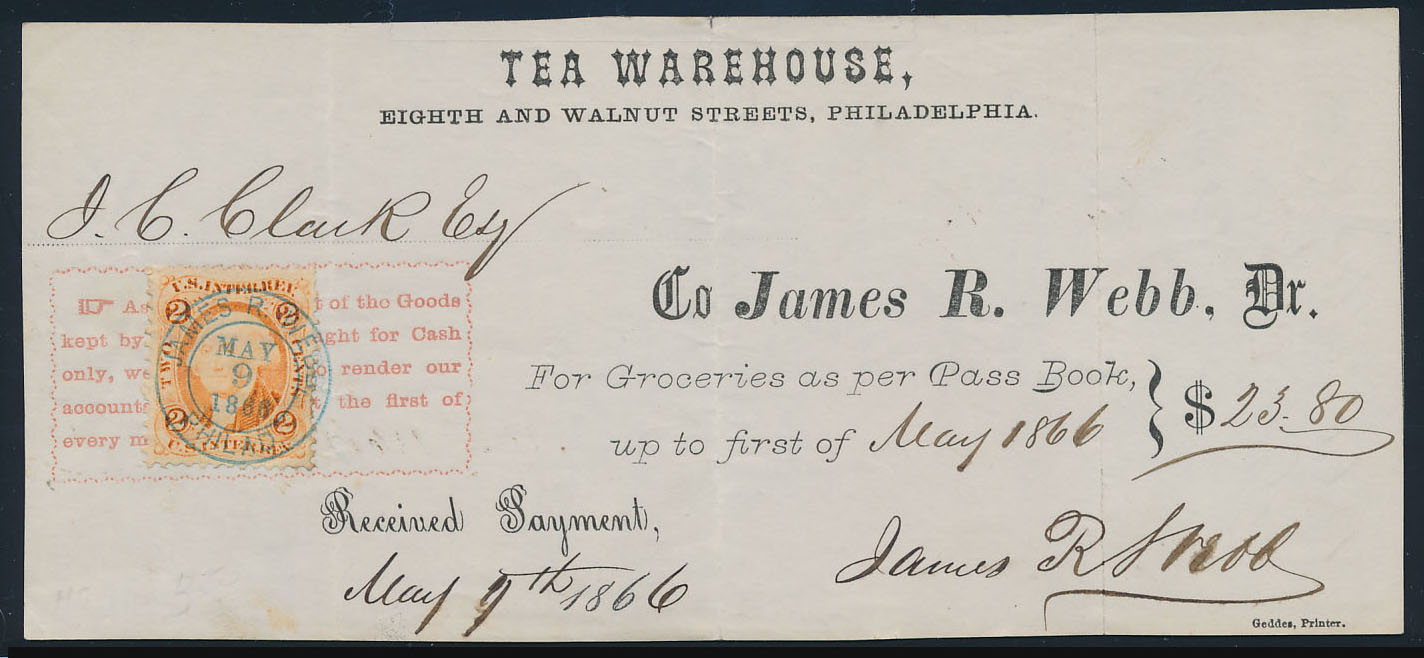 TEA WAREHOUSE,
EIGHTH AND WALNUT STREETS, PHILADELPHIA.
J. C. Clark Esq
To James R. Webb, Dr.
For Groceries as per Pass Book,
up to first of May 1866
$ 23.80
As t of the Goods
kept by ght for Cash
only, we render our
accounts the first of
every m
U.S. INTER. REV.
2 2
TWO CENTS
2 2
JAMES R. WEBB
MAY
9
1866
PHILADA
Received Payment,
May 9th 1866
James R Webb
Geddes, Printer.